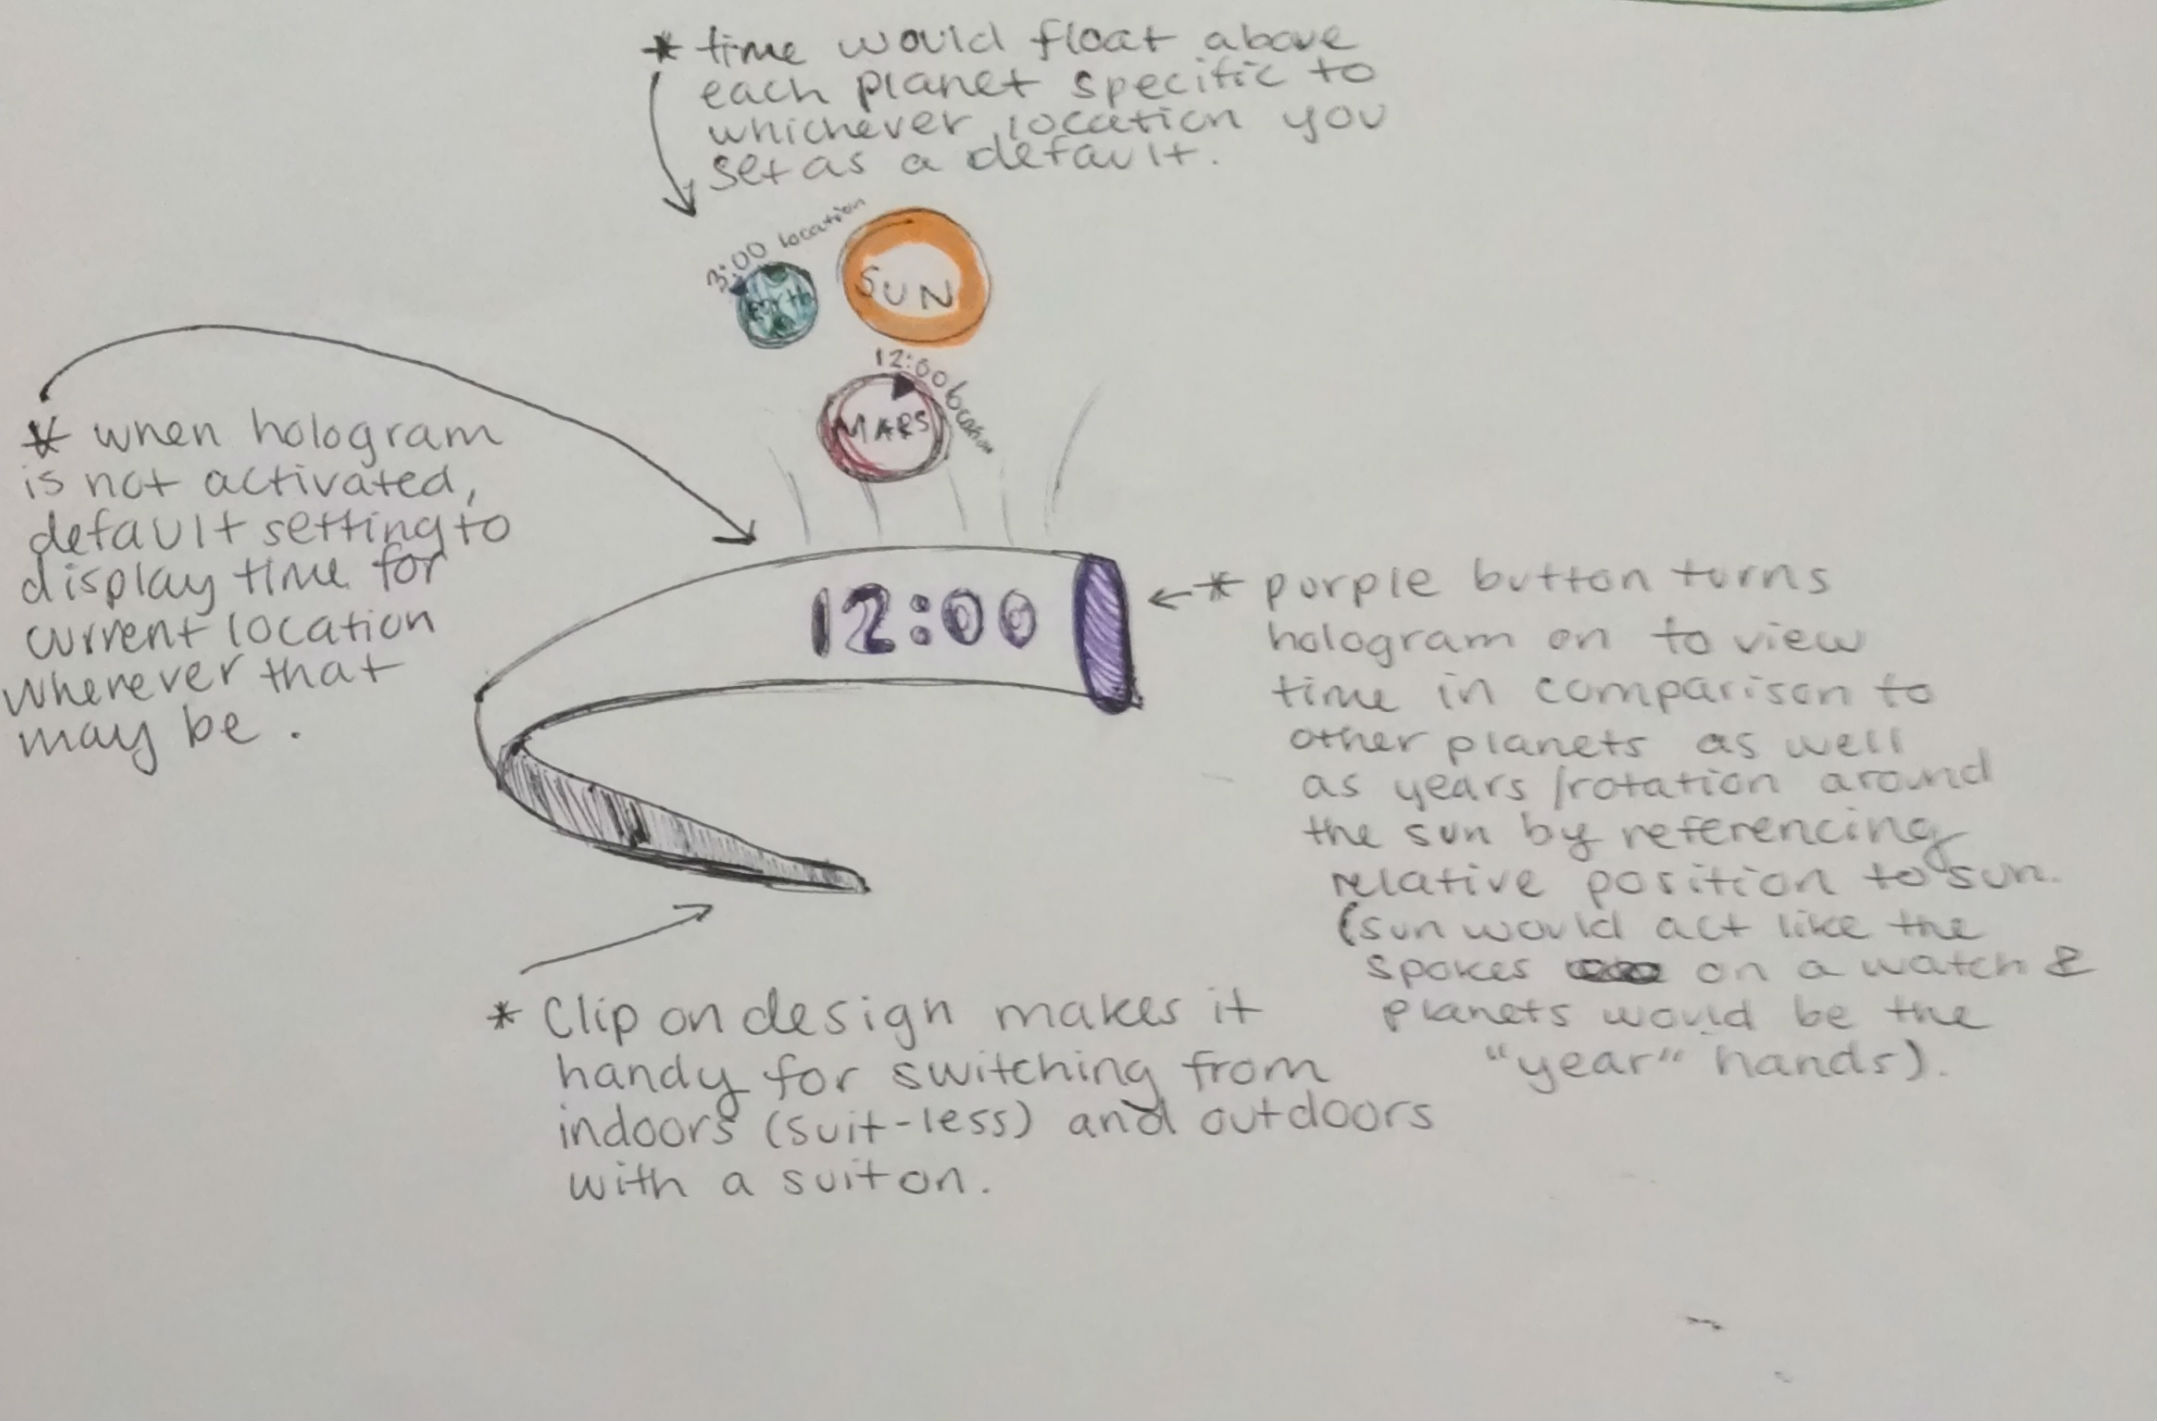 * time would float above
each planet specific to
whichever location you
set as a default.
3:00 location
Earth
SUN
12:00 location
MARS
* when hologram
is not activated,
default setting to
display time for
current location
wherever that
may be.
12:00
* purple button turns
hologram on to view
time in comparison to
other planets as well
as years/rotation around
the sun by referencing
relative position to sun.
(sun would act like the
spokes on a watch &
planets would be the
"year" hands).
* Clip on design makes it
handy for switching from
indoors (suit-less) and outdoors
with a suit on.